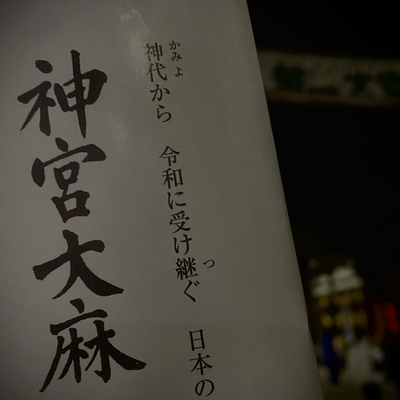 神宮大麻
神代から 令和に受け継ぐ 日本の
かみよ
つ